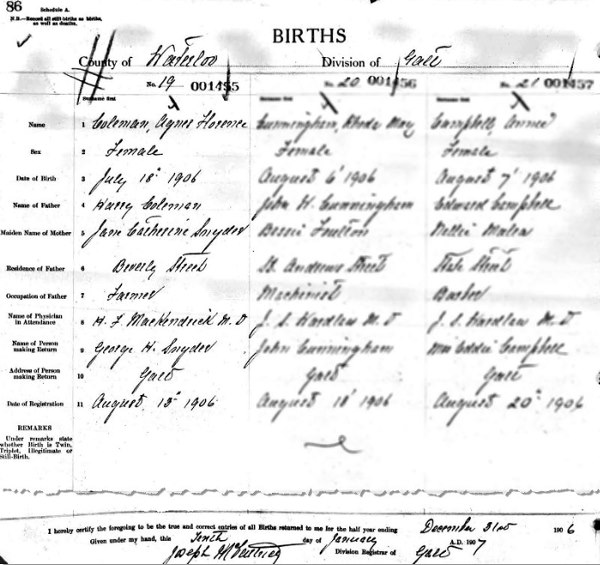 86
Schedule A.
N.B.—Record all still births as births,
as well as deaths.
BIRTHS
County of Waterloo Division of Galt
No. 19 001455 No. 20 001456 No. 21 001457
Surname first Surname first Surname first
Name 1 Coleman, Agnes Florence Cunningham, Rhoda May Campbell, Annie
Sex 2 Female Female Female
Date of Birth 3 July 18" 1906 August 6' 1906 August 7' 1906
Name of Father 4 Harry Coleman John H. Cunningham Edward Campbell
Maiden Name of Mother 5 Jane Catherine Snyder Bessie Nellie
Residence of Father 6 Beverly Street St. Andrews Street State Street
Occupation of Father 7 Farmer Machinist Barber
Name of Physician
in Attendance 8 H. F. MacKendrick M.D J. S. Wardlaw M.D J. S. Wardlaw M.D
Name of Person
making Return 9 George H. Snyder John Cunningham Mrs Eddie Campbell
Address of Person
making Return 10 Galt Galt Galt
Date of Registration 11 August 13" 1906 August 18' 1906 August 20" 1906
REMARKS
Under remarks state
whether Birth is Twin,
Triplet, Illegitimate or
Still-Birth.
I hereby certify the foregoing to be the true and correct entries of all Births returned to me for the half year ending December 31st 1906
Given under my hand, this Tenth day of January A.D. 1907
Joseph Division Registrar of Galt